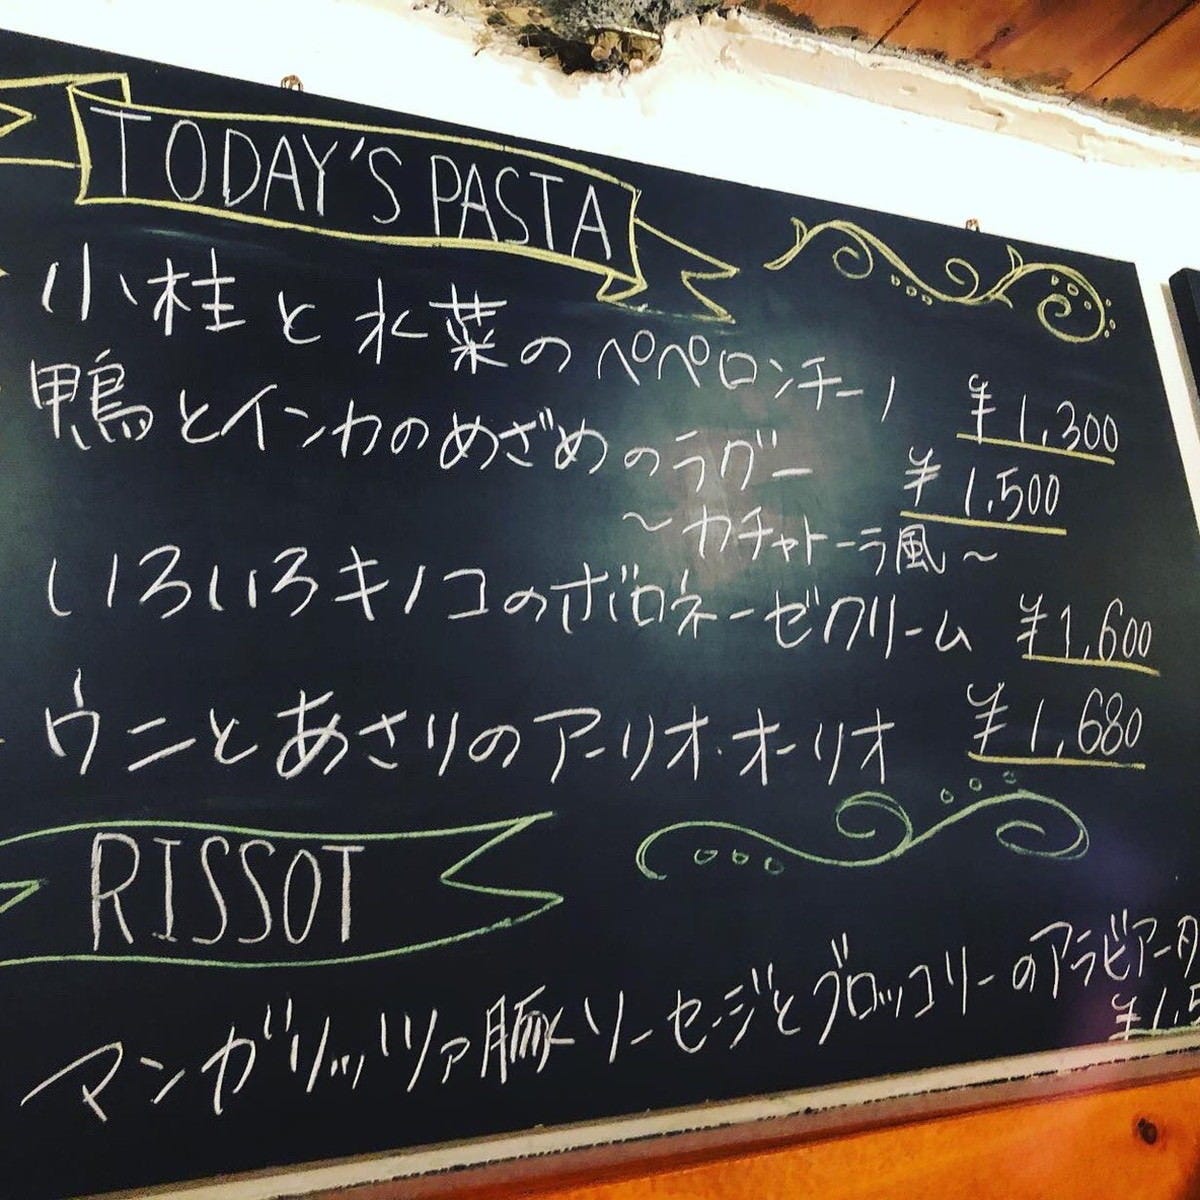 TODAY'S PASTA
小桂と水菜のペペロンチーノ ¥1,300
鴨とインカのめざめのラグー ¥1,500
〜カチャトーラ風〜
いろいろキノコのボロネーゼクリーム ¥1,600
ウニとあさりのアーリオ・オーリオ ¥1,680
RISSOT
マンガリッツァ豚ソーセージとブロッコリーのアラビアータ
¥1,5